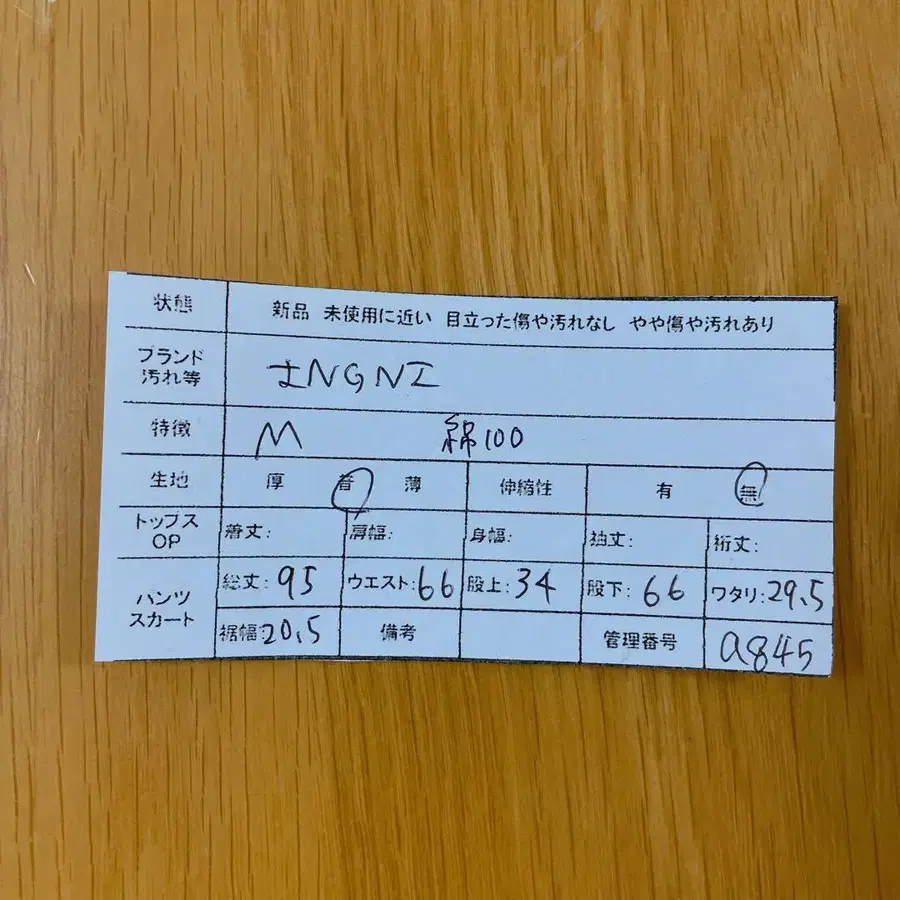 状態 新品 未使用に近い 目立った傷や汚れなし やや傷や汚れあり
ブランド
汚れ等 INGNI
特徴 M 綿100
生地 厚 普 薄 伸縮性 有 無
トップス
OP 着丈: 肩幅: 身幅: 袖丈: 裄丈:
パンツ
スカート 総丈:95 ウエスト:66 股上:34 股下:66 ワタリ:29.5
裾幅:20.5 備考 管理番号 a845